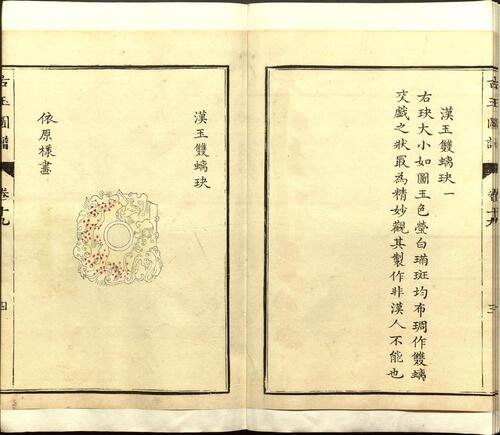 漢玉雙螭玦一
右玦大小如圖玉色瑩白璊斑均布琱作雙螭
交戲之狀最為精妙觀其製作非漢人不能也
古玉圖譜
卷十九
三
漢玉雙螭玦
依原樣畫
古玉圖譜
卷十九
四